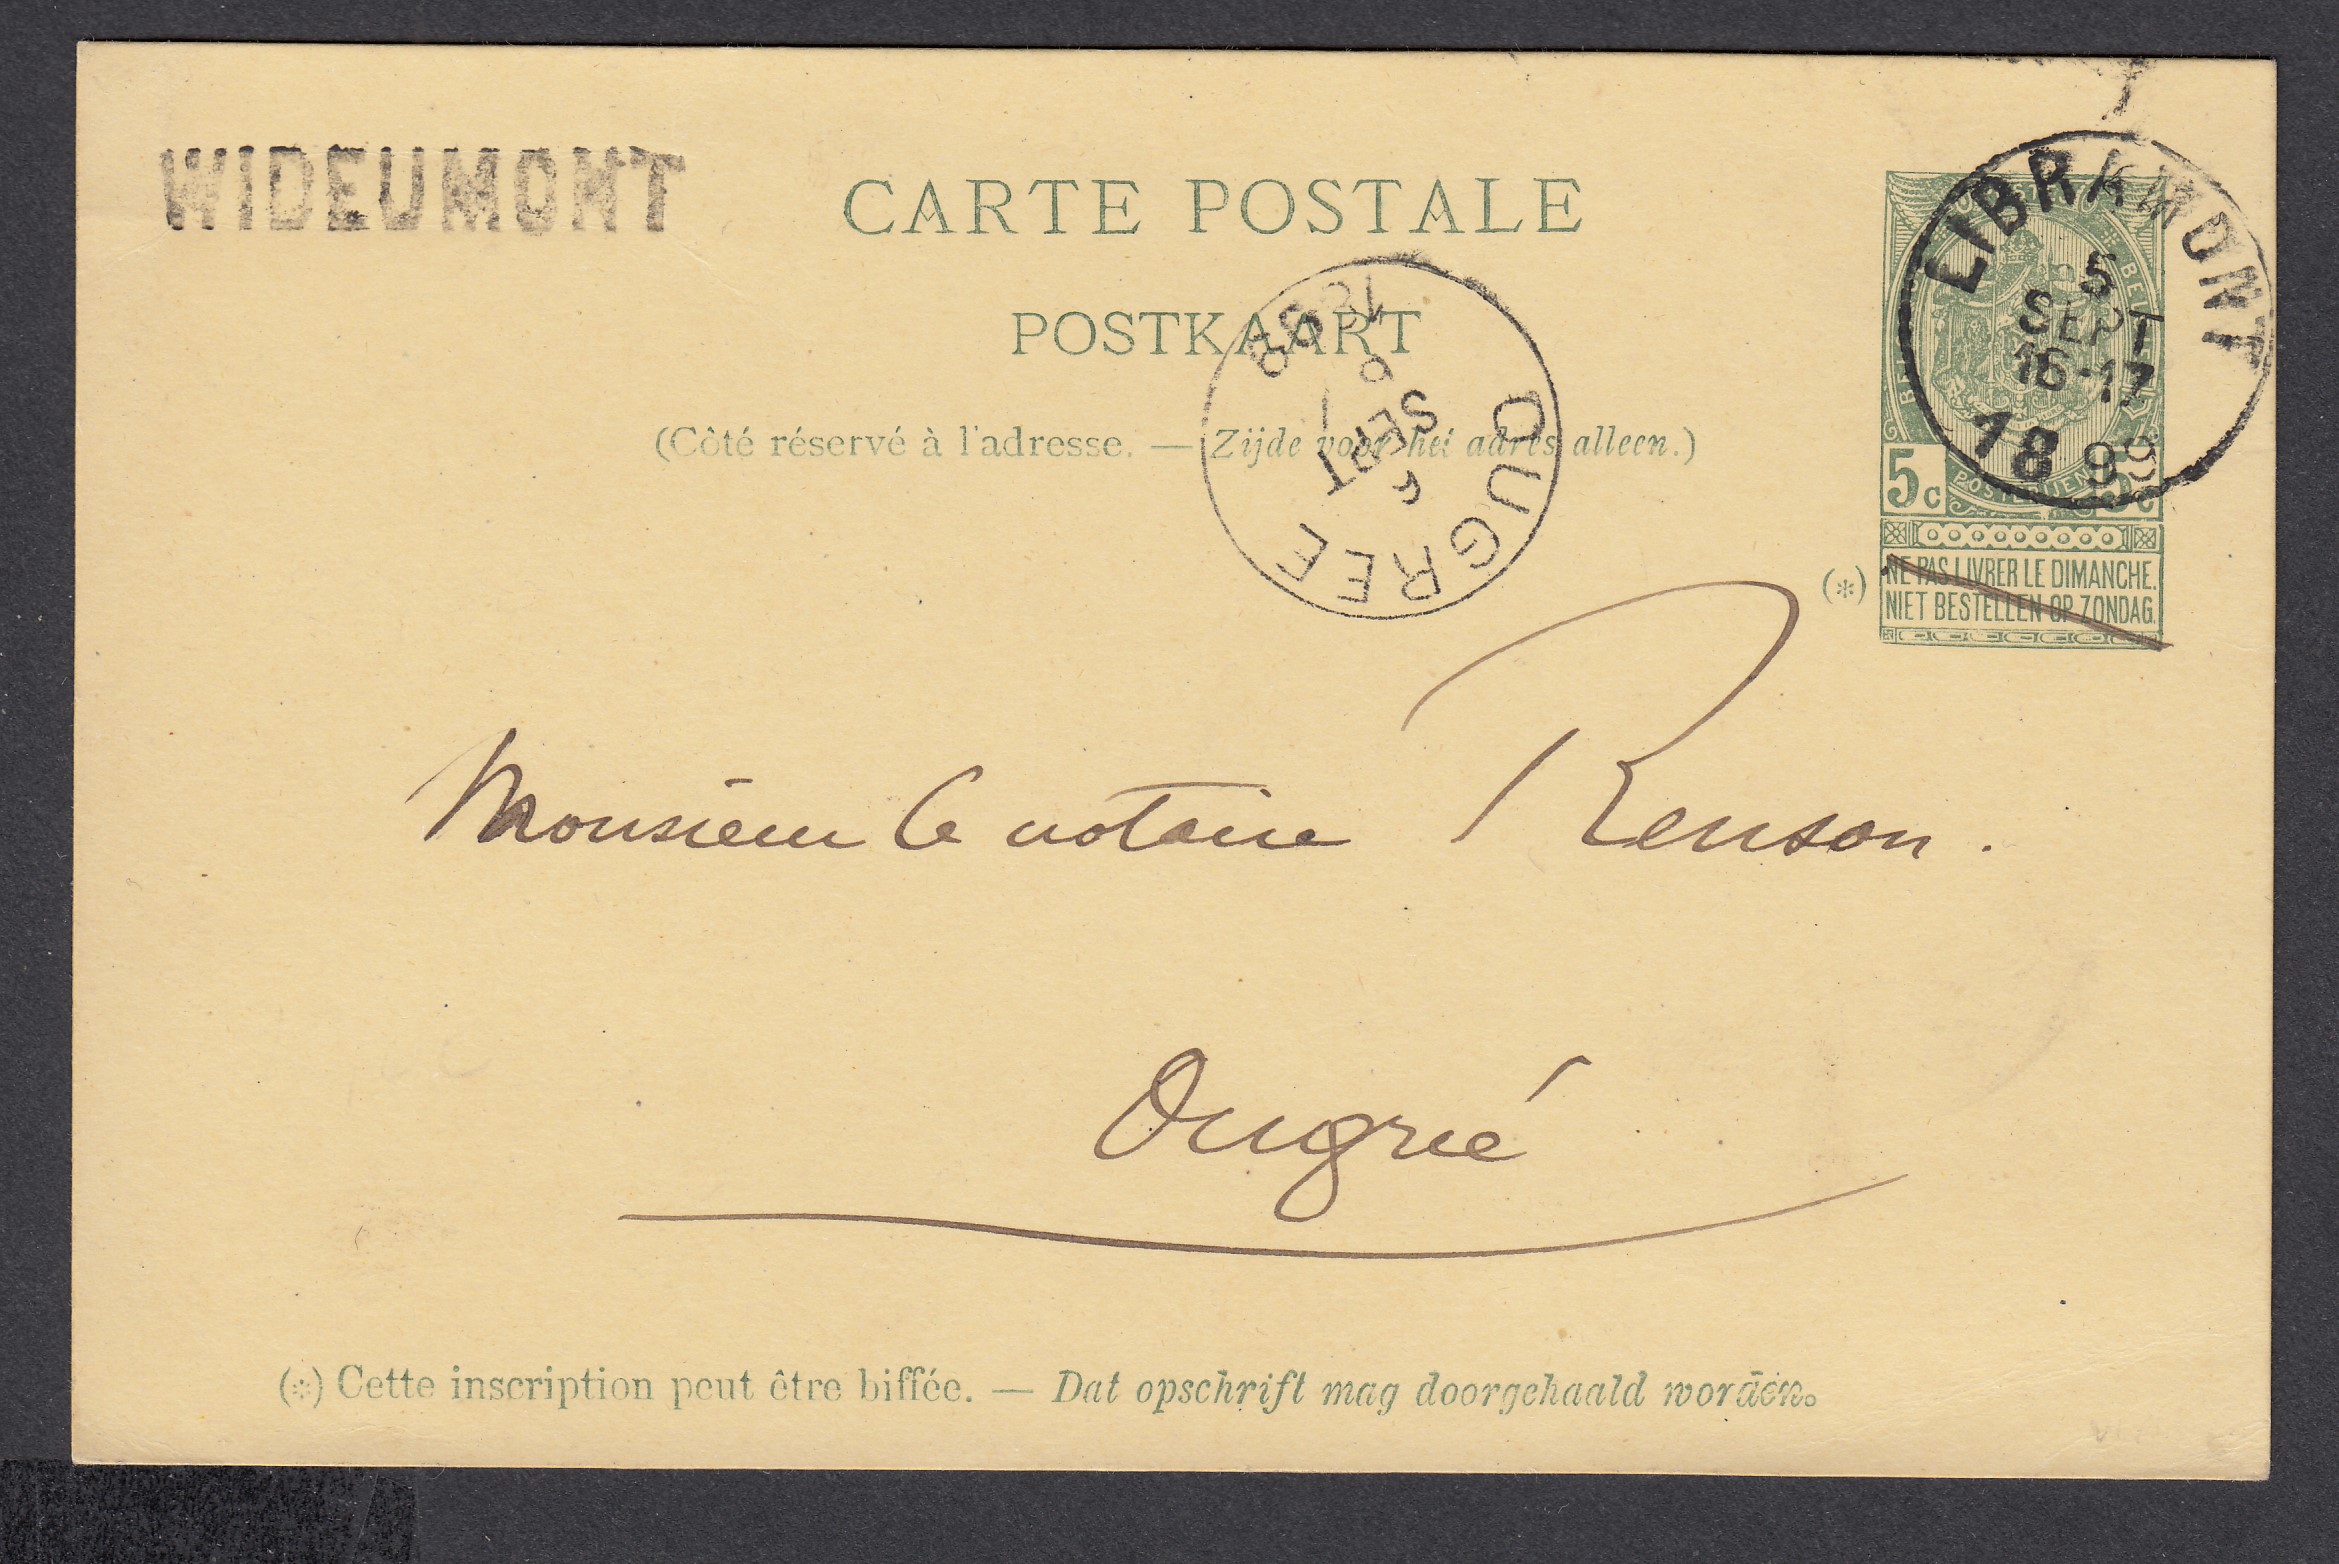 WIDEUMONT
CARTE POSTALE
POSTKAART
(Côté réservé à l'adresse. — Zijde voor het adres alleen.)
LIBRAMONT
5
SEPT
16-17
1899
OUGREE
SEPT
1899
5c 5c
(*) NE PAS LIVRER LE DIMANCHE.
NIET BESTELLEN OP ZONDAG.
Monsieur le notaire Renson.
Ougrée
(*) Cette inscription peut être biffée. — Dat opschrift mag doorgehaald worden.